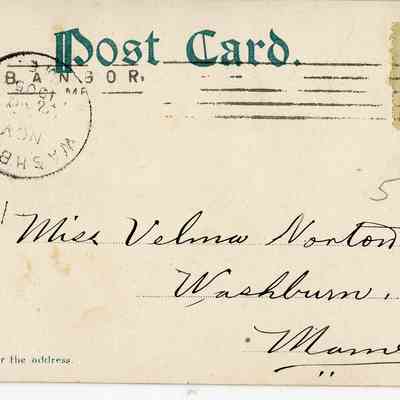 Post Card.
BANGOR,
ME
1905
NOV
WASHB
5
Miss Velma Norton
Washburn,
Maine
r the address.